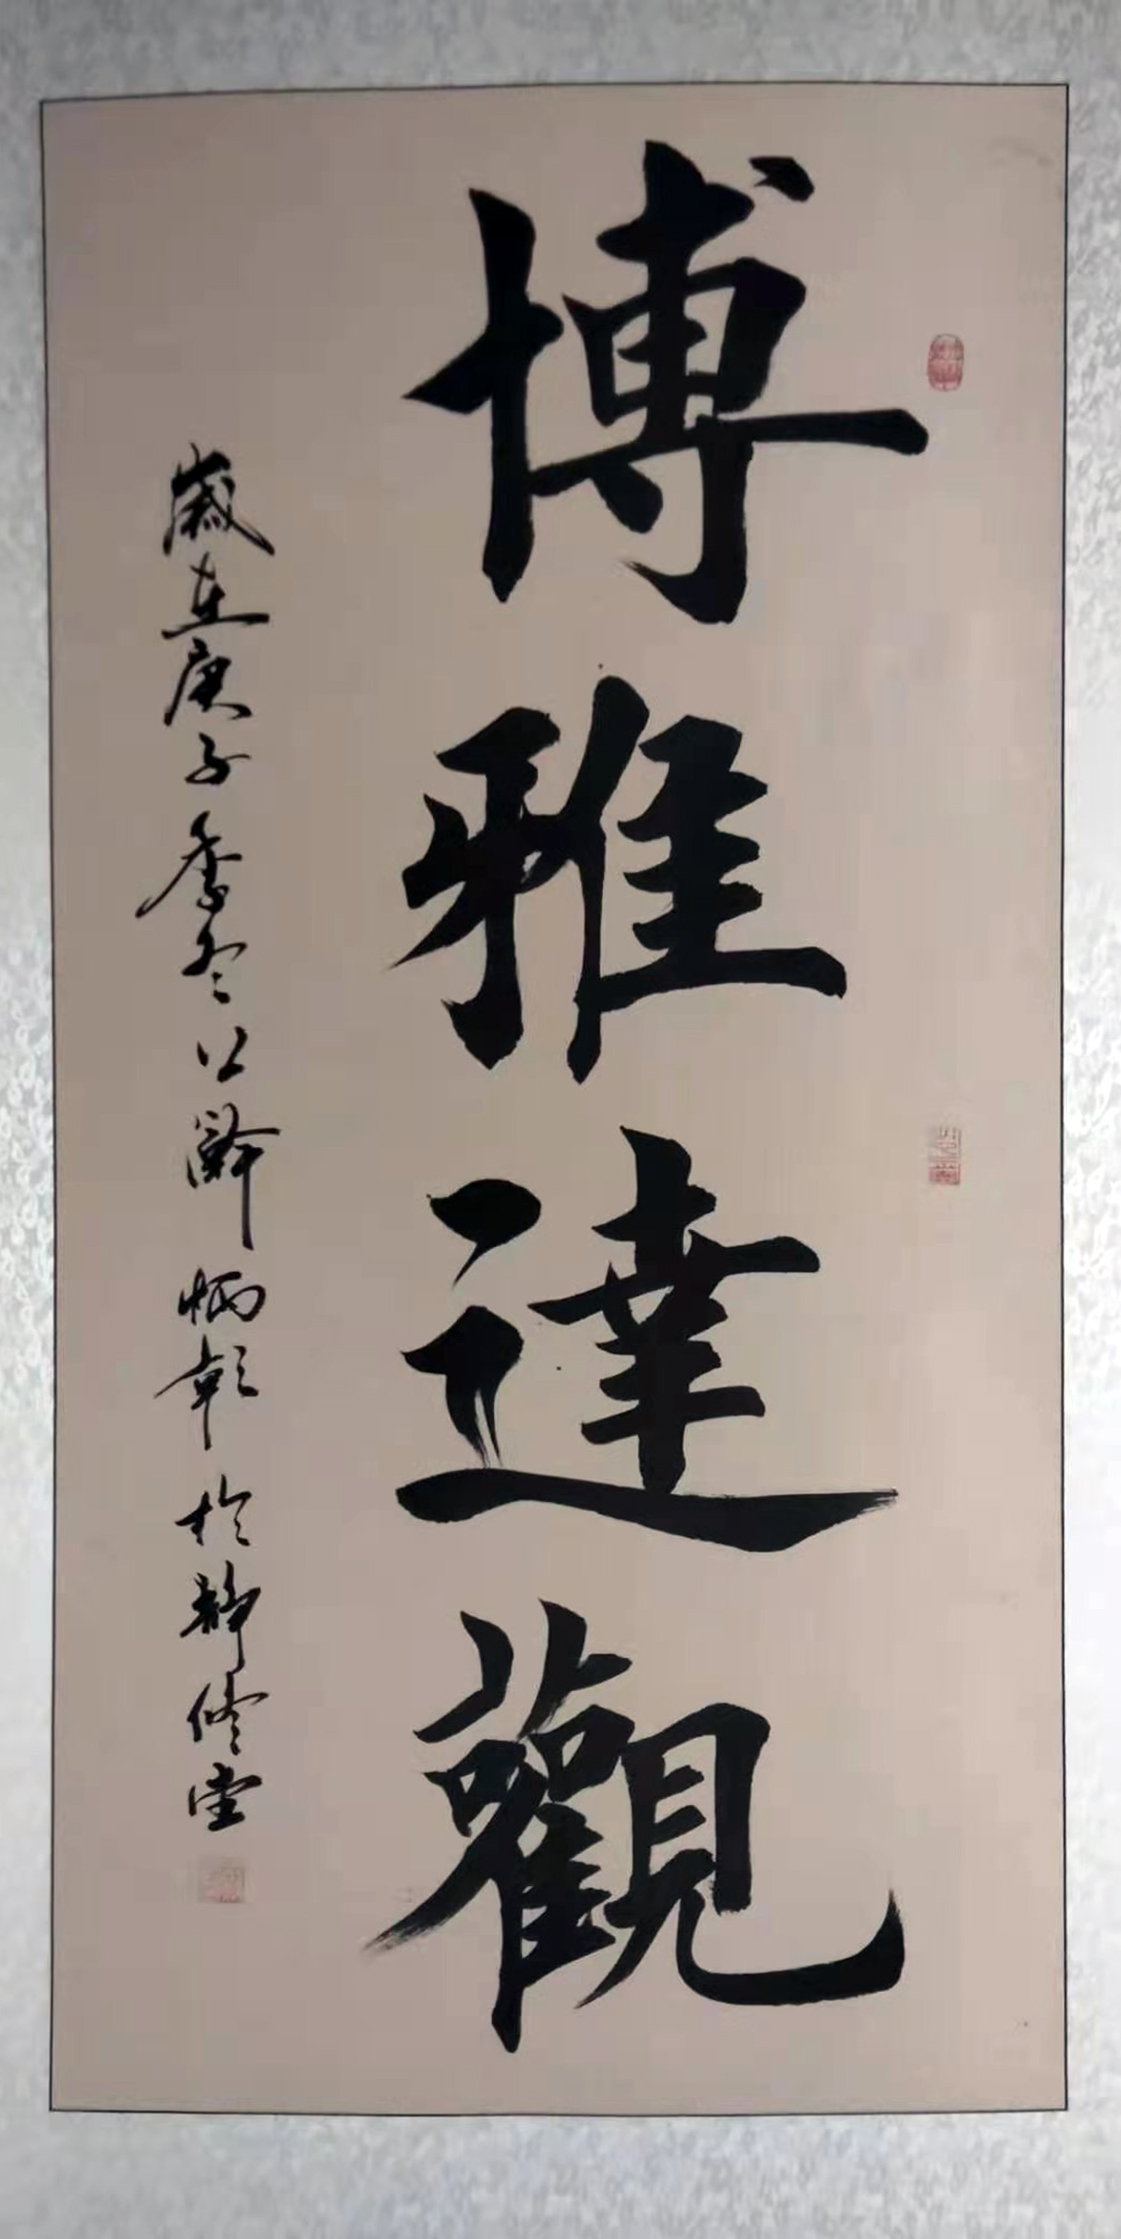 博雅達觀
歲在庚子季冬 炳乾於靜修堂